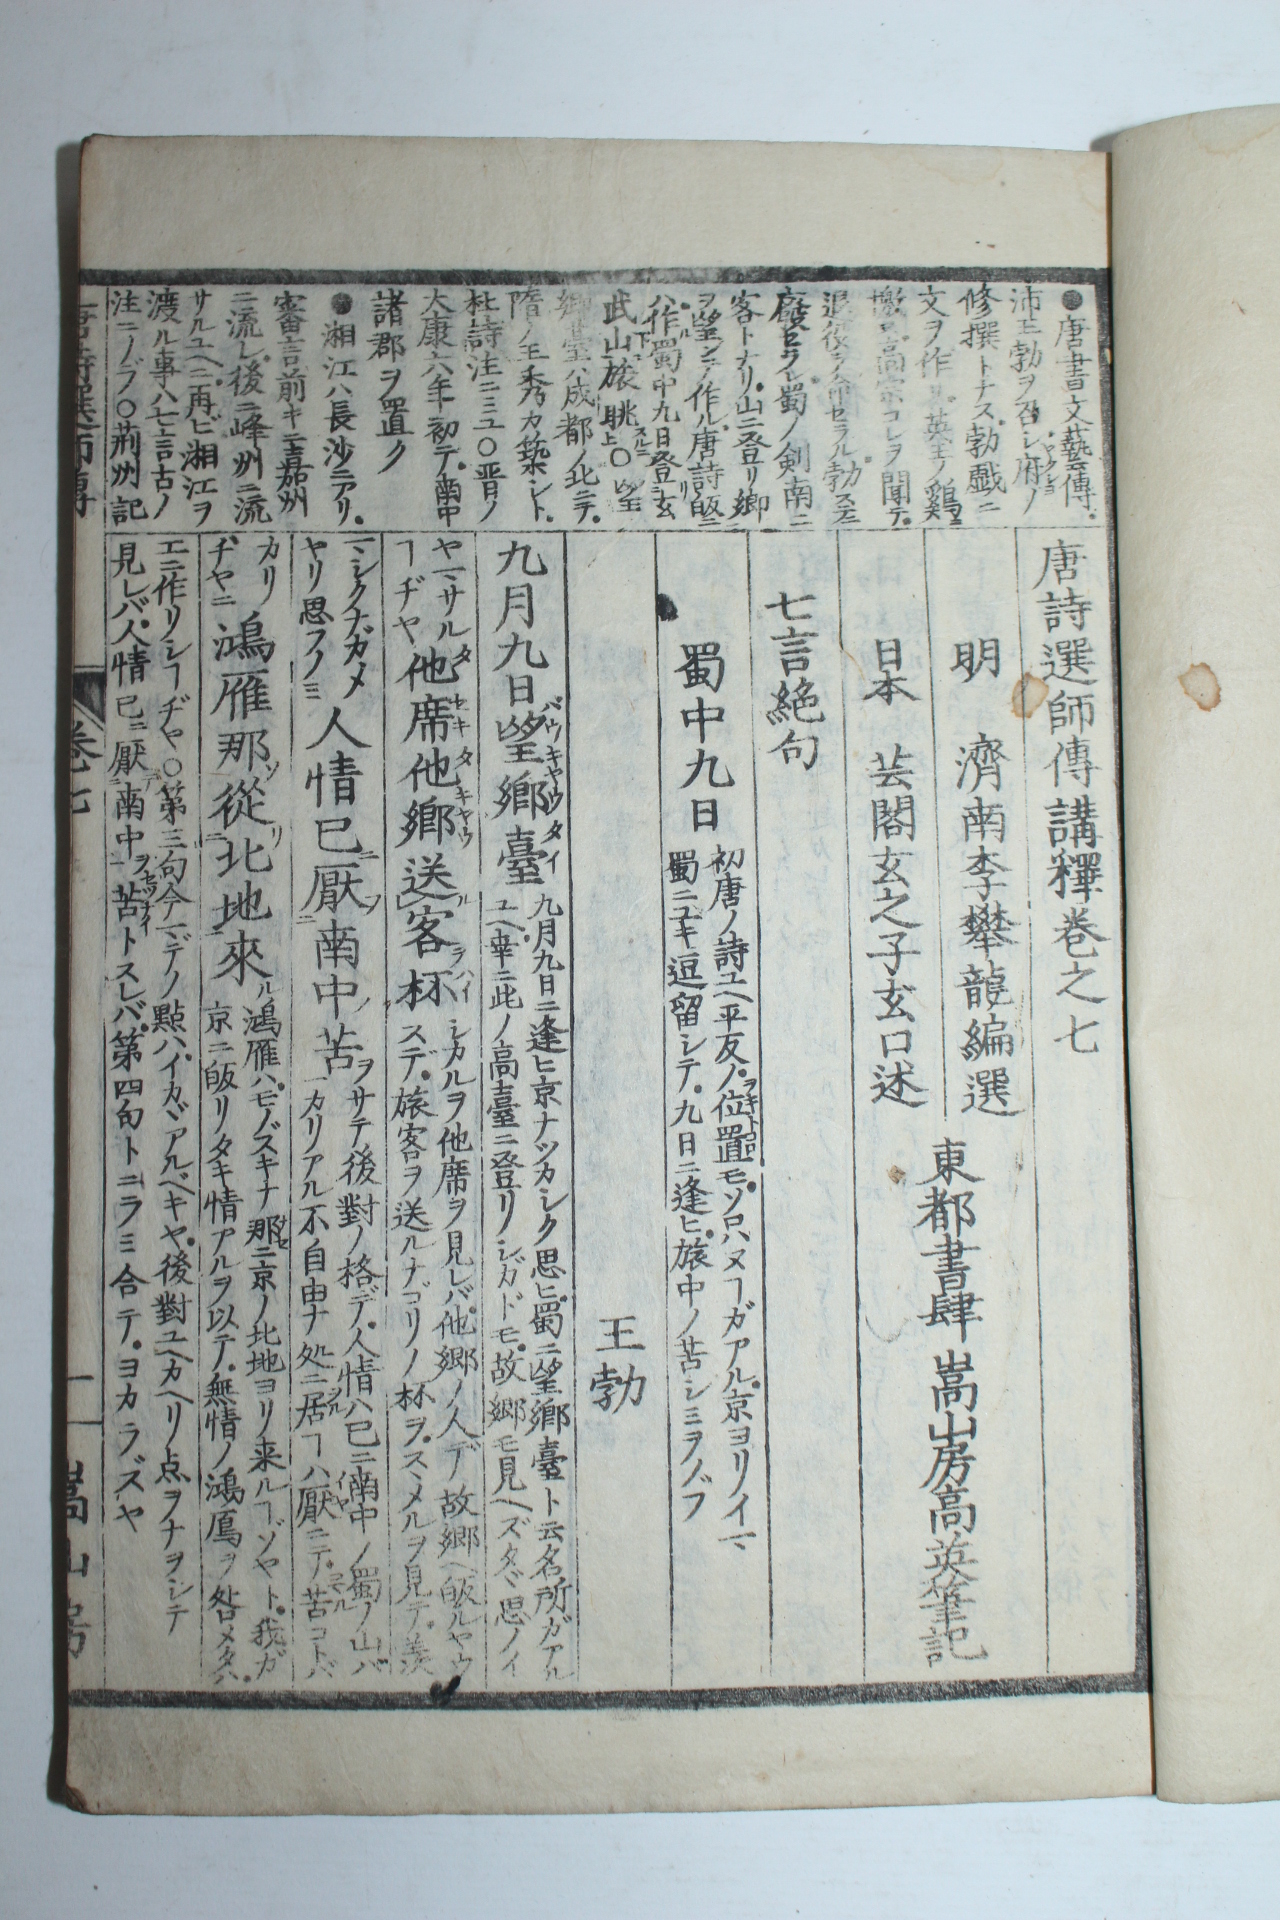 唐詩選師傳講釋卷之七
明　濟南李攀龍編選
日本　芸閣玄之子玄口述
東都書肆　嵩山房高英筆記
七言絶句
蜀中九日
初唐ノ詩ユヘ平仄ノ位置モソロハヌヿガアル京ヨリイ
蜀ニユキ逗留シテ九日ニ逢ヒ旅中ノ苦シミヲノブ
王勃
九月九日望鄉臺
九月九日ニ逢ヒ京ナツカシク思ヒ蜀ニ望鄉臺ト云名所ガアル
ユヘ幸ニ此ノ高臺ニ登リノシガドモ故鄉モ見ヘズタヾ思ノイ
ヤマサル
ヿヂヤ
他席他鄉送客杯
シカルヲ他席ヲ見レバ他鄉ノ人デ故鄉ヘ皈ルヤウ
スデ旅客ヲ送ルナゴリノ杯ヲスヽメルヲ見テ羨
シクナガメ
ヤリ思フノミ
人情已厭南中苦
サテ後對ノ格デ人情ハ已ニ南中ノ蜀ノ山バ
カリアル不自由ナ処ニ居ヿハ厭ニテ苦コトバ
カリ
ヂヤニ
鴻雁那從北地來
鴻雁ハモノズキナ那ニ京ノ北地ヨリ来ルヿゾヤト我ガ
京ニ皈リタキ情アルヲ以テ無情ノ鴻鳫ヲ咎メタハ
エニ作リシヿヂヤ〇第三句今マデノ點ハイカヾアルベキヤ後對ユヘカヘリ点ヲナヲシテ
見レバ人情已ニ厭南中苦トスレバ第四句トニラミ合テヨカラズヤ
●唐書文藝傳
沛王勃ヲ召シ府ノ
修撰トナス勃戲ニ
文ヲ作ル英王ノ鷄
檄ヲ高宗コレヲ聞テ
退役ヲ命セラル勃スデニ
廢セラレ蜀ノ剣南ニ
客トナリ山ニ登リ鄉
ヲ望シテ作ル唐詩皈ニ
作蜀中九日登玄
武山旅眺〇望
鄉臺ハ成都ノ北ニテ
隋ノ王秀カ築シト
杜詩注ニミユ〇晋ノ
太康六年初テ南中
諸郡ヲ置ク
●湘江ハ長沙ニアリ
審言前キニ嘉州
ニ流レ後ニ峰州ニ流
サルユヘニ再ビ湘江ヲ
渡ル事ハ七言古ノ
注ニノブ〇荊州記
卷七
一
嵩山房